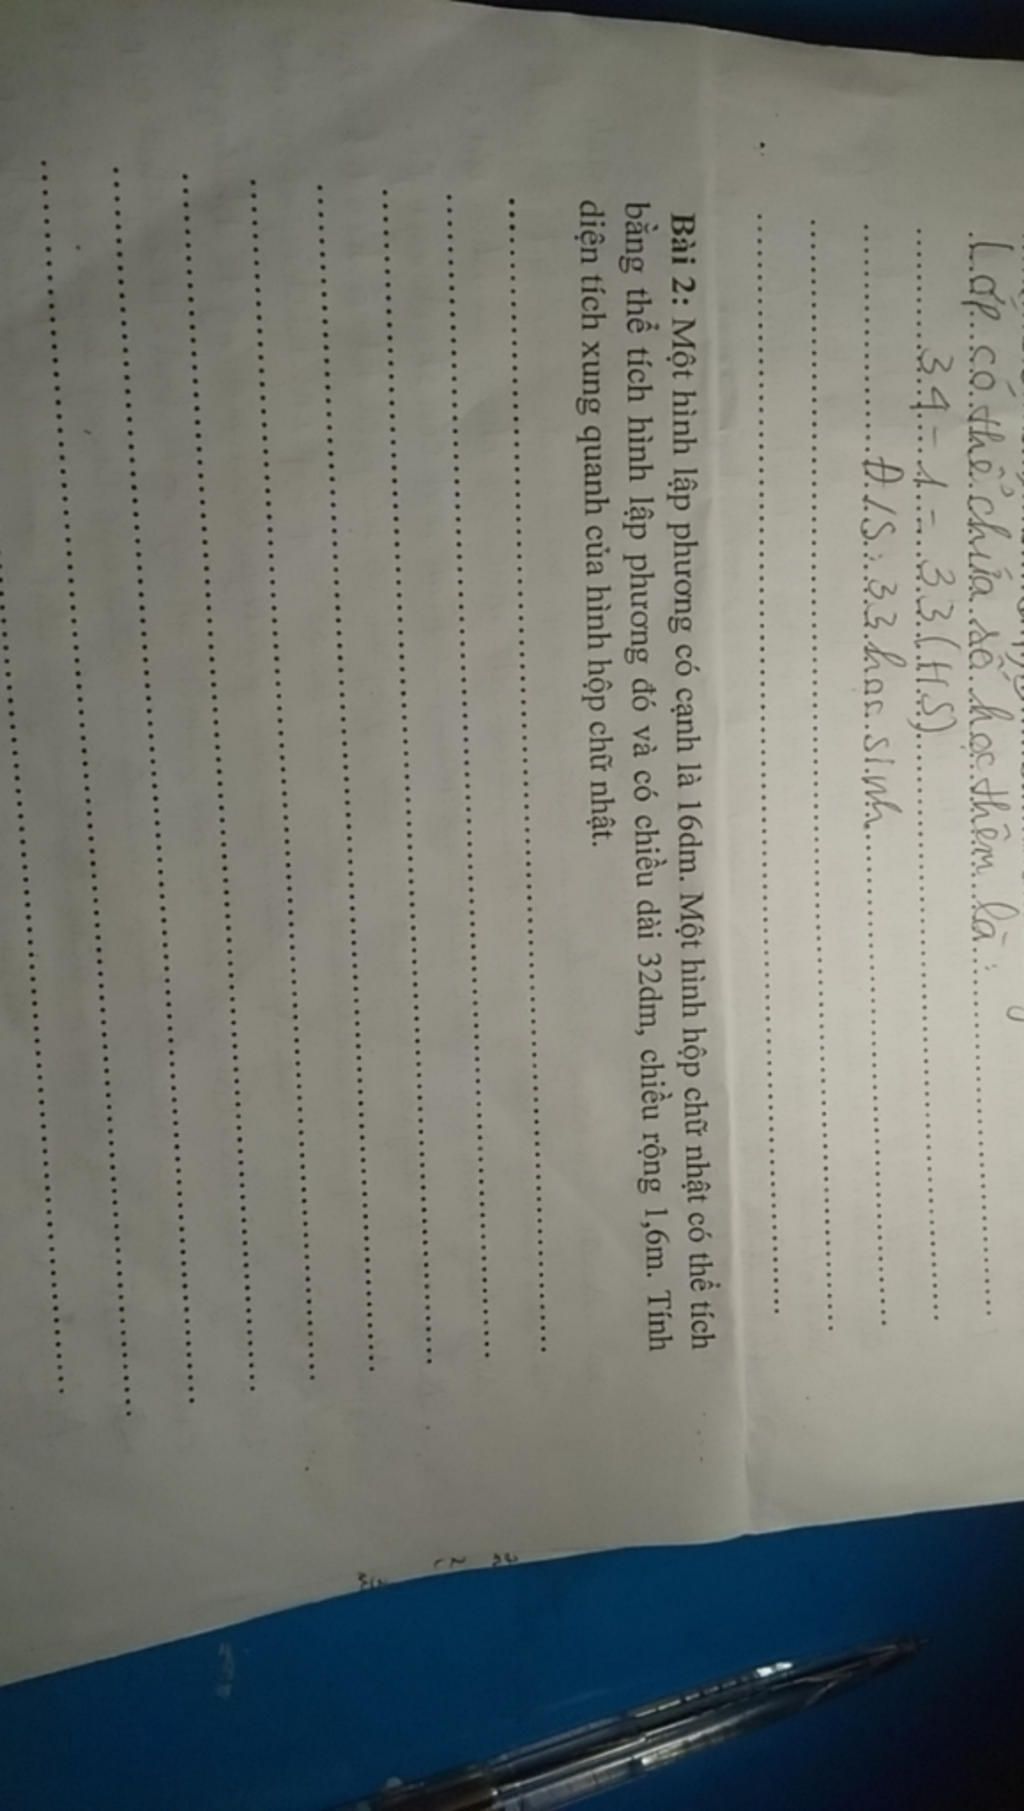 Lớp có thể chứa số học thêm là:
34 - 1 - 33 (HS)
Đ/S: 33 học sinh
Bài 2: Một hình lập phương có cạnh là 16dm. Một hình hộp chữ nhật có thể tích
bằng thể tích hình lập phương đó và có chiều dài 32dm, chiều rộng 1,6m. Tính
diện tích xung quanh của hình hộp chữ nhật.